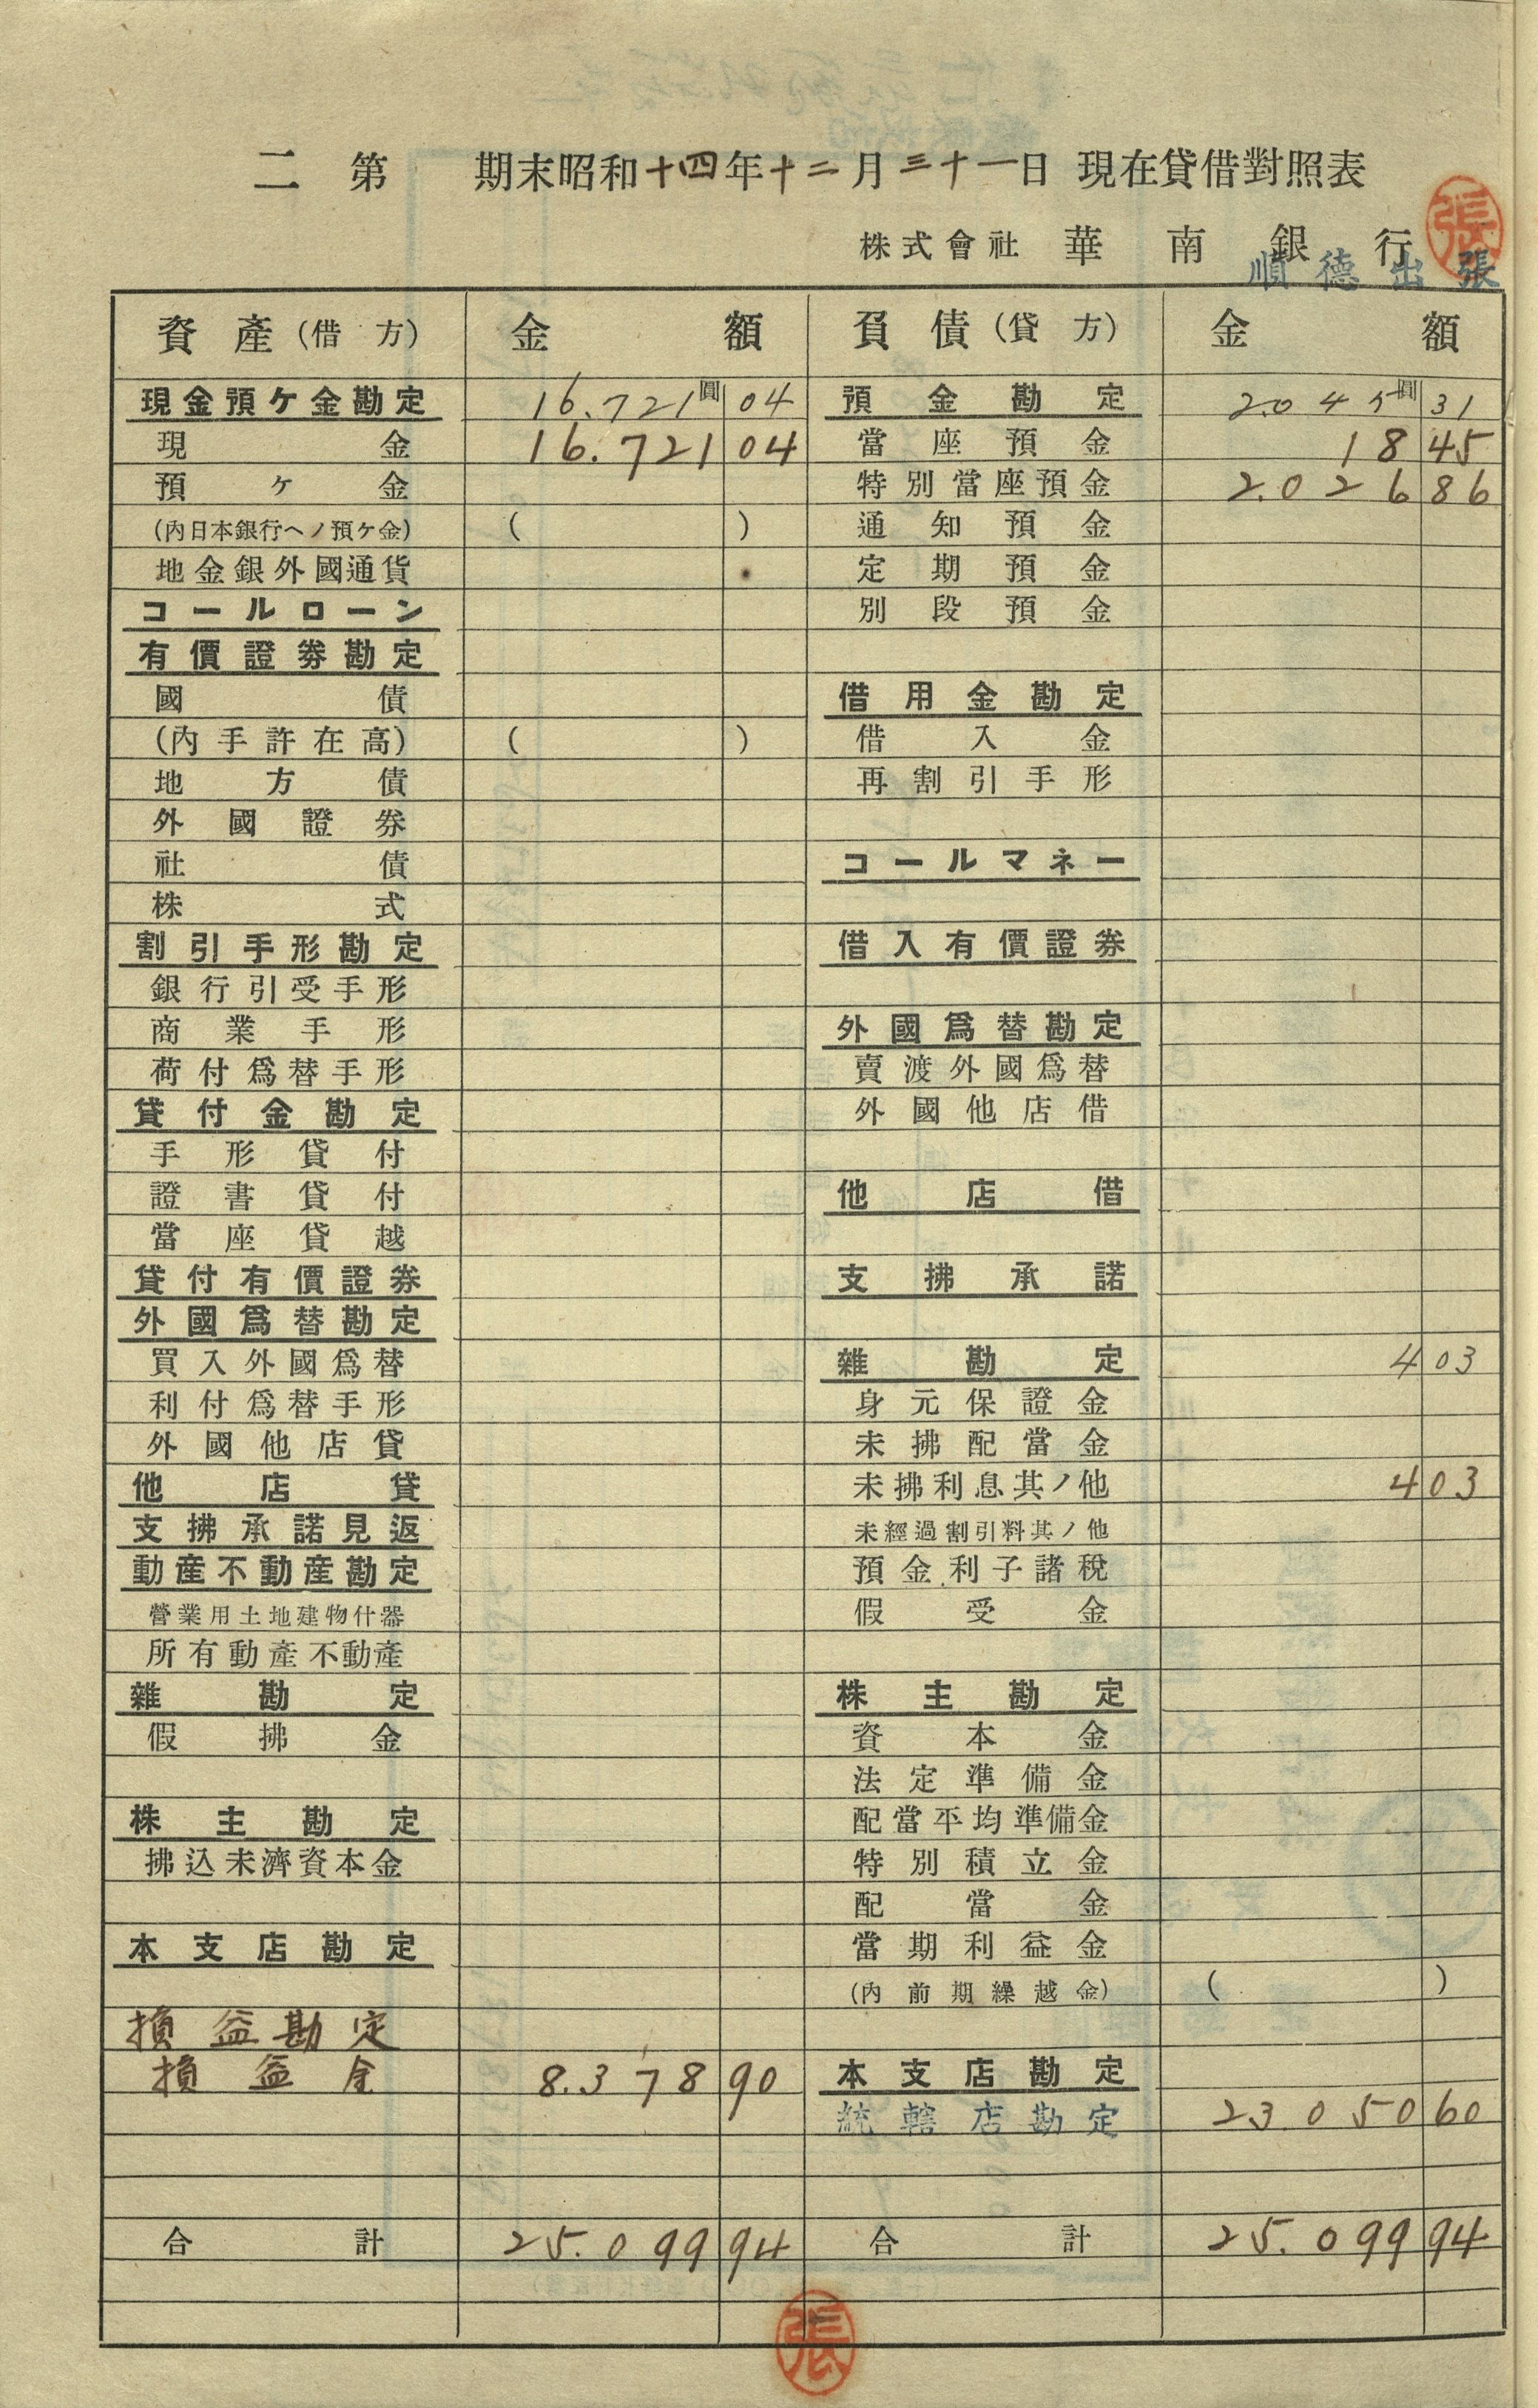 二 第 期末昭和十四年十二月三十一日 現在貸借對照表
株式會社 華南銀行
順德出張
張
資產(借方) 金額 負債(貸方) 金額
現金預ケ金勘定 16.721圓04 預金勘定 2.045圓31
現金 16.721 04 當座預金 18 45
預ケ金 特別當座預金 2.026 86
(內日本銀行ヘノ預ケ金) ( ) 通知預金
地金銀外國通貨 定期預金
コールローン 別段預金
有價證券勘定
國債 借用金勘定
(內手許在高) ( ) 借入金
地方債 再割引手形
外國證券
社債 コールマネー
株式
割引手形勘定 借入有價證券
銀行引受手形
商業手形 外國爲替勘定
荷付爲替手形 賣渡外國爲替
貸付金勘定 外國他店借
手形貸付
證書貸付 他店借
當座貸越
貸付有價證券 支拂承諾
外國爲替勘定
買入外國爲替 雜勘定 4 03
利付爲替手形 身元保證金
外國他店貸 未拂配當金
他店貸 未拂利息其ノ他 4 03
支拂承諾見返 未經過割引料其ノ他
動產不動產勘定 預金利子諸稅
營業用土地建物什器 假受金
所有動產不動產
雜勘定 株主勘定
假拂金 資本金
法定準備金
株主勘定 配當平均準備金
拂込未濟資本金 特別積立金
配當金
本支店勘定 當期利益金
(內前期繰越金) ( )
損益勘定
損益金 8.378 90 本支店勘定
統轄店勘定 23.050 60
合計 25.099 94 合計 25.099 94
張